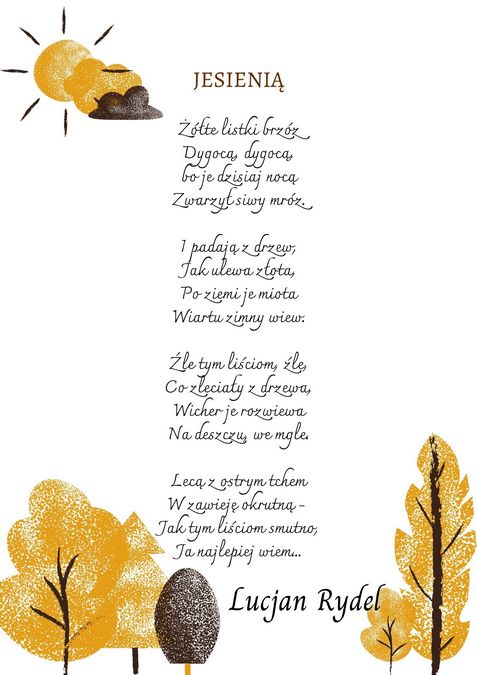 JESIENIĄ
Żółte listki brzóz
Dygocą, dygocą,
bo je dzisiaj nocą
Zwarzył siwy mróz.
I padają z drzew,
Jak ulewa złota,
Po ziemi je miota
Wiartu zimny wiew.
Źle tym liściom, źle,
Co zleciały z drzewa,
Wicher je rozwiewa
Na deszczu, we mgle.
Lecą z ostrym tchem
W zawieję okrutną -
Jak tym liściom smutno,
Ja najlepiej wiem...
Lucjan Rydel